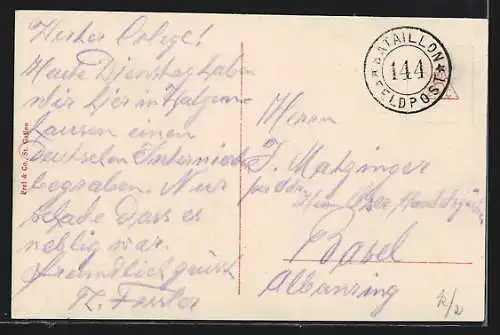 Werther Colege!
Heute Dienstag haben
wir hier in Walzen-
hausen einen
deutschen Internierten
begraben. Nur
schade dass es
neblig war.
Freundlich grüsst
Frei & Co., St. Gallen
BATAILLON
144
FELDPOST
Herrn
J. Matzinger
per Adr.
Basel
Albanring